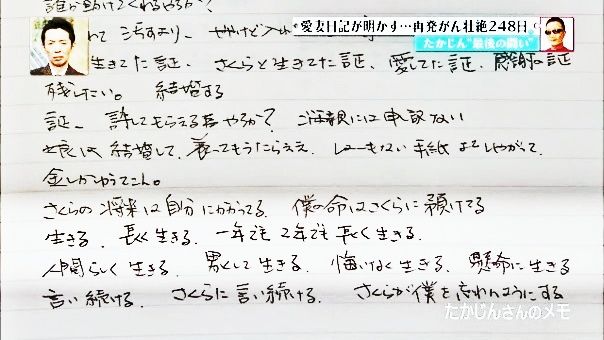 愛妻日記が明かす…再発がん壮絶248日
たかじん“最後の闘い”
誰が助けてくれるやろか?
生きてた証、さくらと生きてた証、愛してた証、感謝の証
残したい。結婚する
証、許してもらえる
ご両親には申訳ない
結婚して、養ってもうたらええ、しょーもない手紙よこしやがって、
さくらの将来は自分にかかってる。僕の命はさくらに預けてる
生きる、長く生きる、一年でも2年でも長く生きる、
人間らしく生きる、男として生きる、悔いなく生きる、懸命に生きる
言い続ける、さくらに言い続ける、さくらが僕を忘れんようにする
たかじんさんのメモ